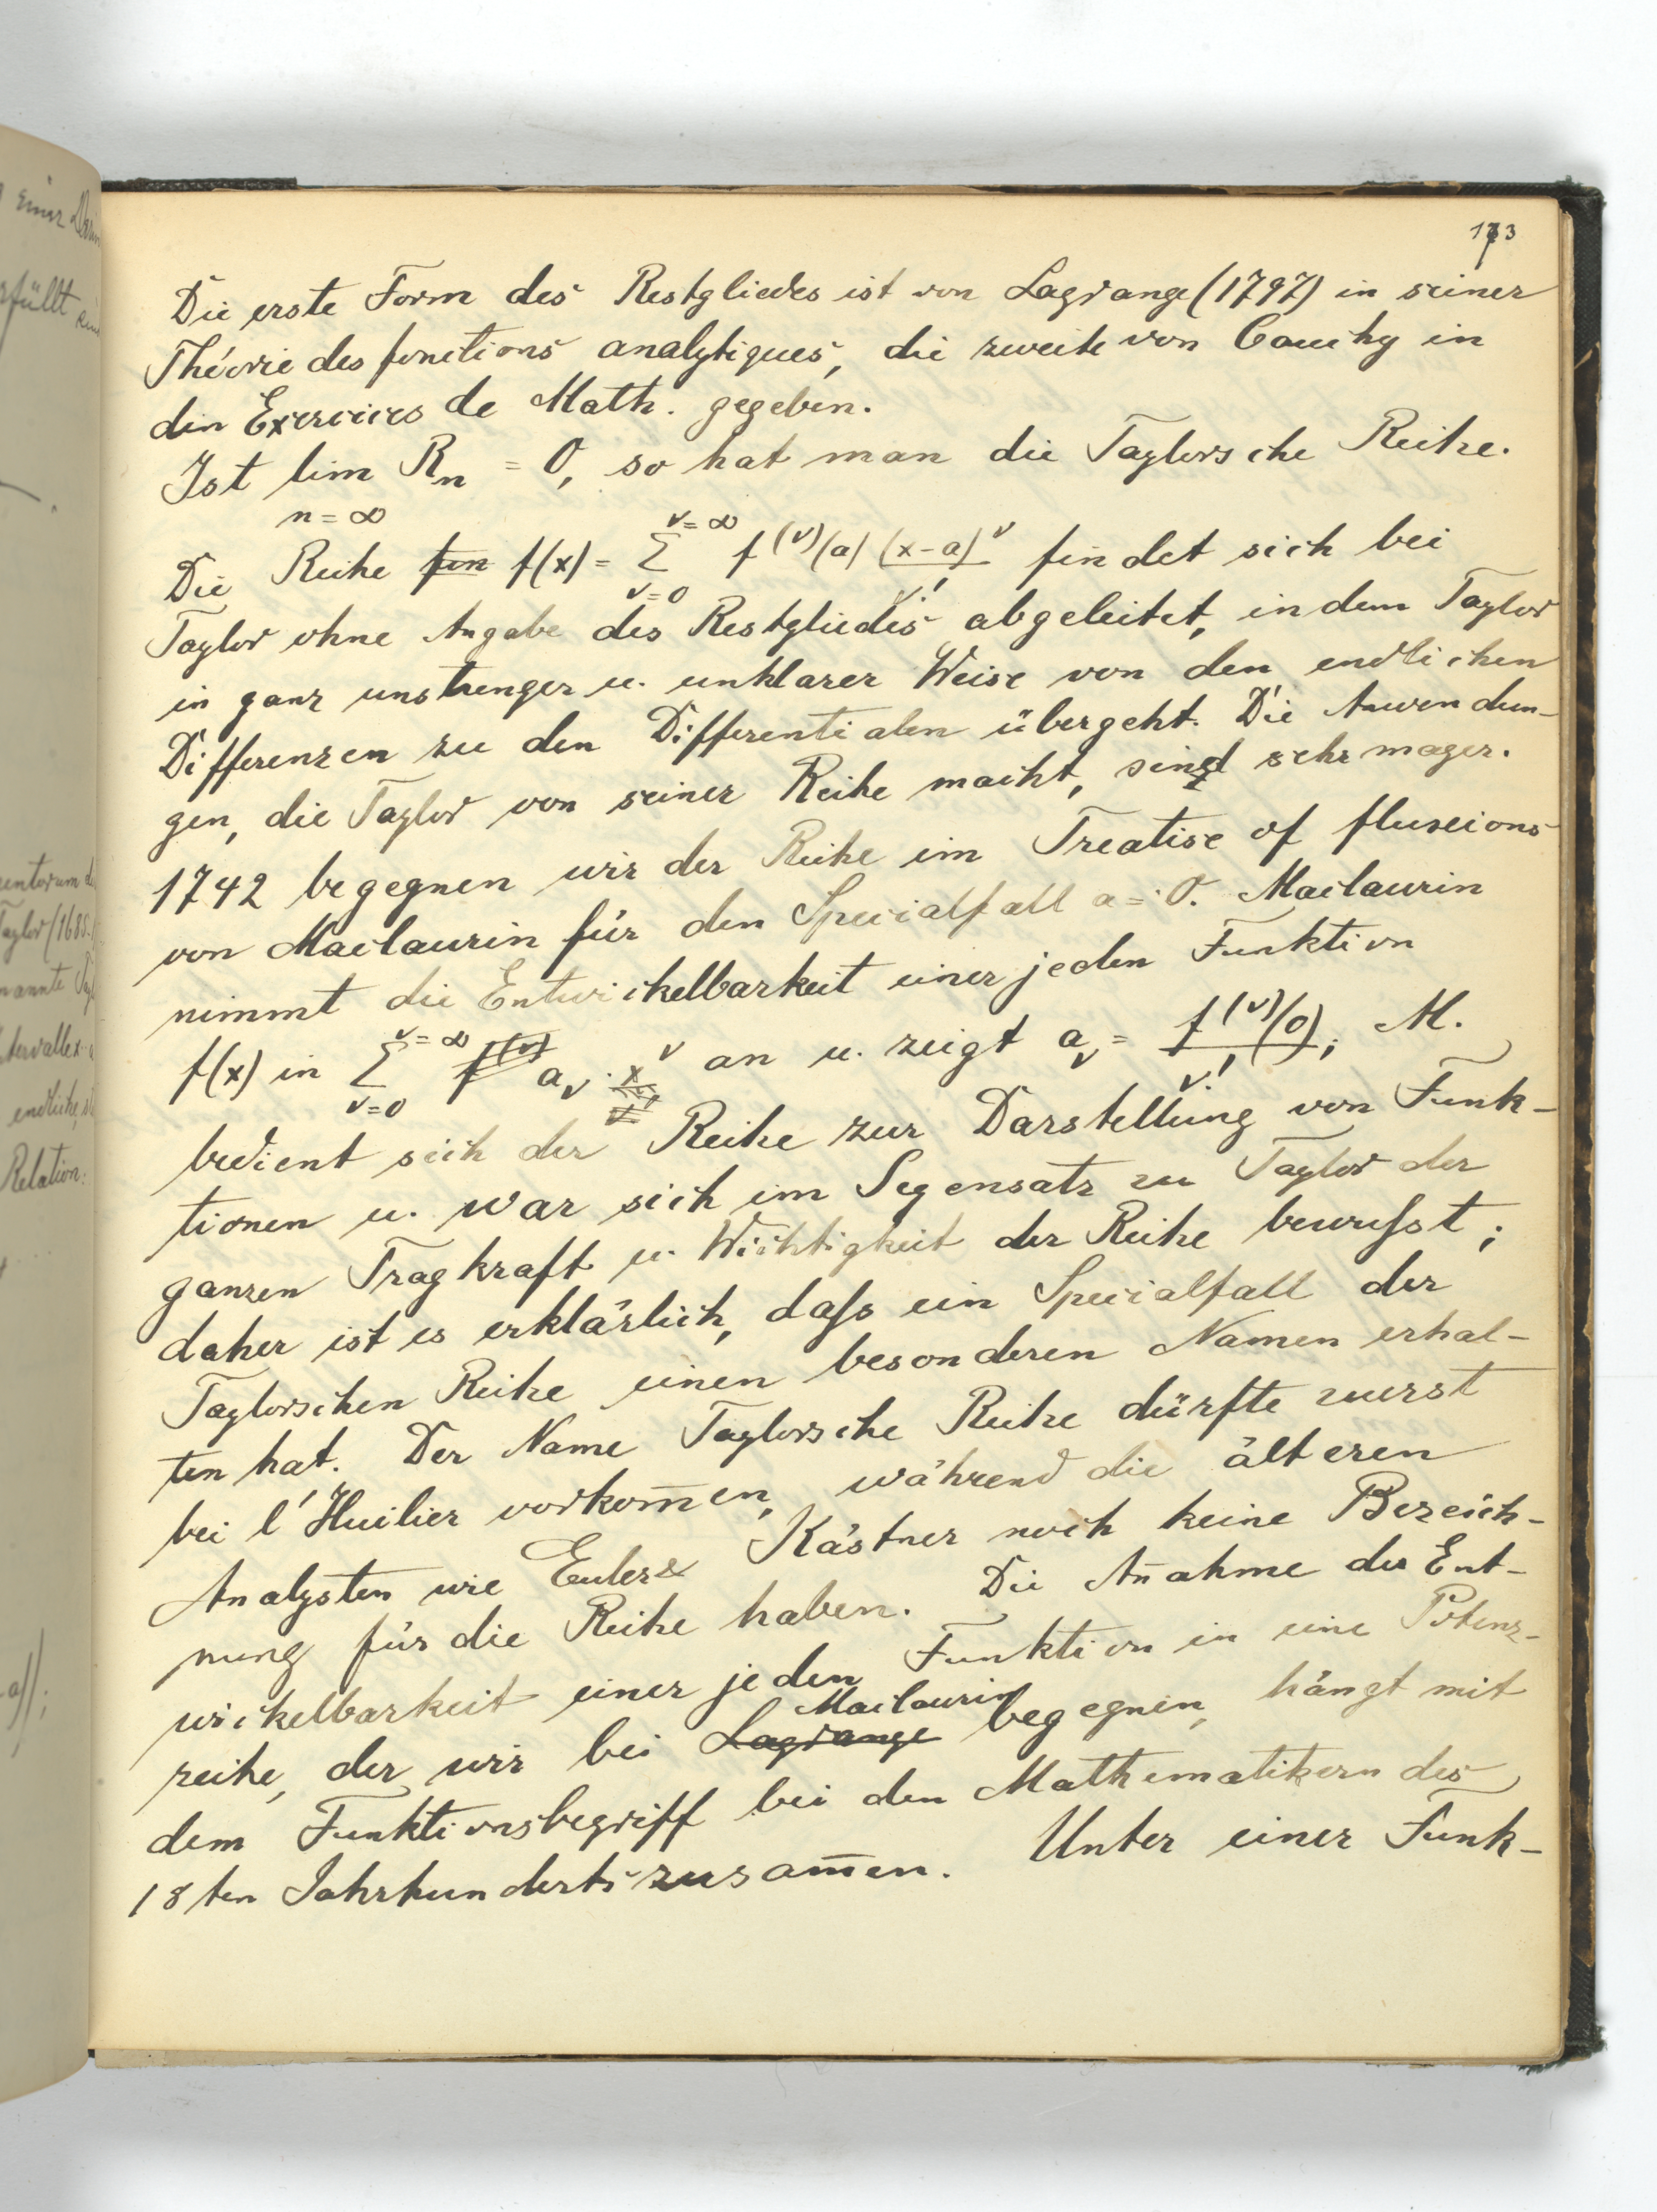 173
Die erste Form des Restgliedes ist von Lagrange (1797) in seiner
Théorie des fonctions analytiques, die zweite von Cauchy in
den Exercices de Math. gegeben.
Ist lim Rn = 0, so hat man die Taylorsche Reihe.
n=∞
Die Reihe f(x) = Σ_{ν=0}^{ν=∞} f^(ν)(a) (x-a)^ν/ν! findet sich bei
Taylor ohne Angabe des Restgliedes abgeleitet, indem Taylor
in ganz unstrenger u. unklarer Weise von den endlichen
Differenzen zu den Differentialen übergeht. Die Anwendun-
gen, die Taylor von seiner Reihe macht, sind sehr mager.
1742 begegnen wir der Reihe im Treatise of fluxions
von Maclaurin für den Specialfall a = 0. Maclaurin
nimmt die Entwickelbarkeit einer jeden Funktion
f(x) in Σ_{ν=0}^{ν=∞} a_ν · x^ν an u. zeigt a_ν = f^(ν)(0)/ν!; M.
bedient sich der Reihe zur Darstellung von Funk-
tionen u. war sich im Gegensatz zu Taylor der
ganzen Tragkraft u. Wichtigkeit der Reihe bewußt;
daher ist es erklärlich, daß ein Specialfall der
Taylorschen Reihe einen besonderen Namen erhal-
ten hat. Der Name Taylorsche Reihe dürfte zuerst
bei l'Huilier vorkom̅en, während die älteren
Analysten wie Euler & Kästner noch keine Bezeich-
nung für die Reihe haben. Die An̅ahme der Ent-
wickelbarkeit einer jeden Funktion in eine Potenz-
Maclaurin
reihe, der wir bei Lagrange begegnen, hängt mit
dem Funktionsbegriff bei den Mathematikern des
18ten Jahrhunderts zusam̅en. Unter einer Funk-
einer
rfüllt
Taylor (1685-
nannte
endliche,
Relation: